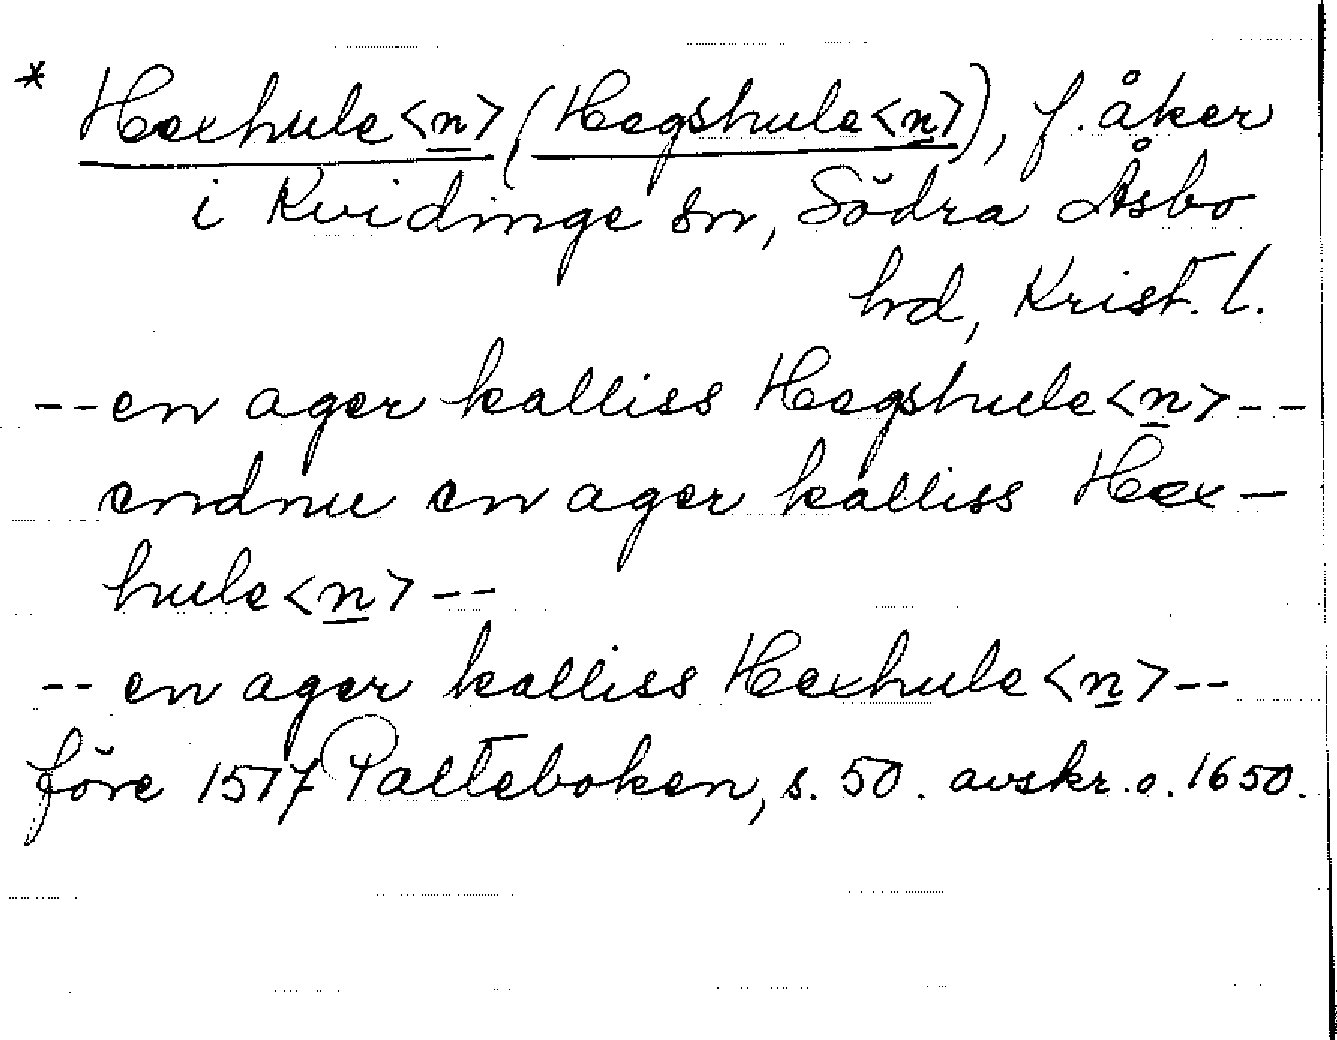 * Hexhule<n> (Hegshule<n>), f. åker
i Kvidinge sn, Södra Åsbo
hd, Krist. l.
-- en ager kalliss Hegshule<n> --
endnu en ager kalliss Hex-
hule<n> --
-- en ager kalliss Hexhule<n> --
före 1517 Palteboken, s. 50. avskr. o. 1650.